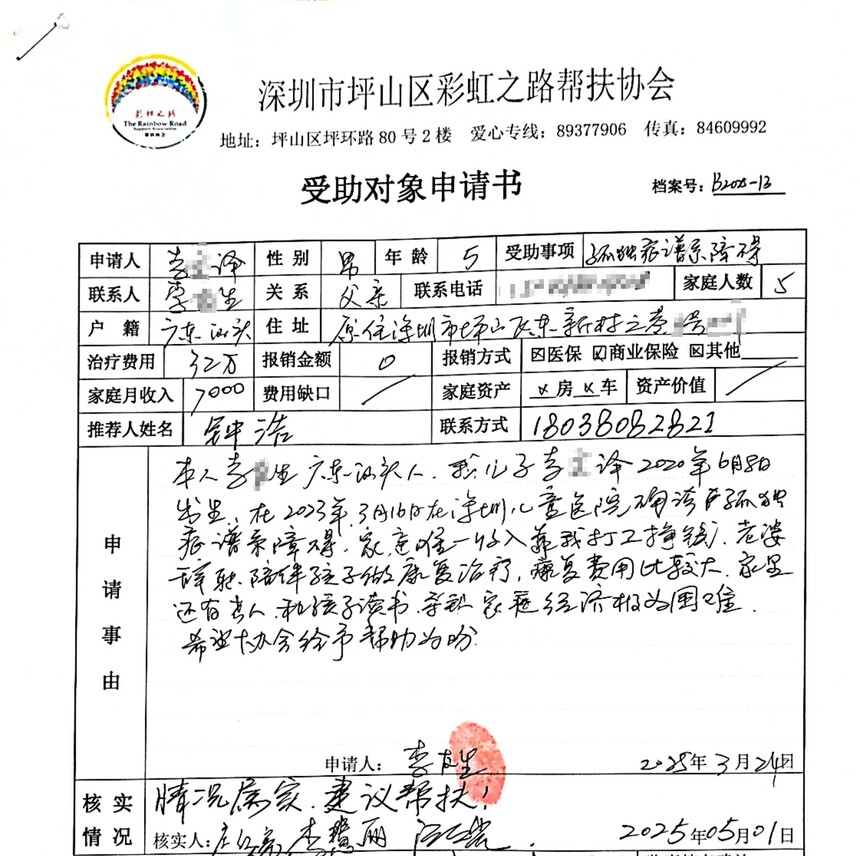 彩虹之路
The Rainbow Road
Support Association
深圳市坪山区彩虹之路帮扶协会
地址：坪山区坪环路80号2楼 爱心专线：89377906 传真：84609992
受助对象申请书
档案号：B202-13
申请人 李 译 性别 男 年龄 5 受助事项 孤独症谱系障碍
联系人 李 生 关系 父亲 联系电话 家庭人数 5
户籍 广东汕头 住址 原住深圳市坪山区东新村立
治疗费用 32万 报销金额 0 报销方式 ☒医保 ☑商业保险 ☒其他
家庭月收入 7000 费用缺口 / 家庭资产 x房x车 资产价值 /
推荐人姓名 钟浩 联系方式 18038082821
申请事由
本人李 生广东汕头人，我儿子李 译2020年6月8日
出生，在2023年3月16日在深圳儿童医院确诊孤独
症谱系障碍，家庭唯一收入靠我打工挣钱，老婆
辞职陪伴孩子做康复治疗，康复费用比较大，家里
还有老人和孩子读书，导致家庭经济极为困难，
希望协会给予帮助为盼
申请人：李 生 2025年3月24日
核实情况
情况属实，建议帮扶！
核实人： 李 丽 2025年05月01日